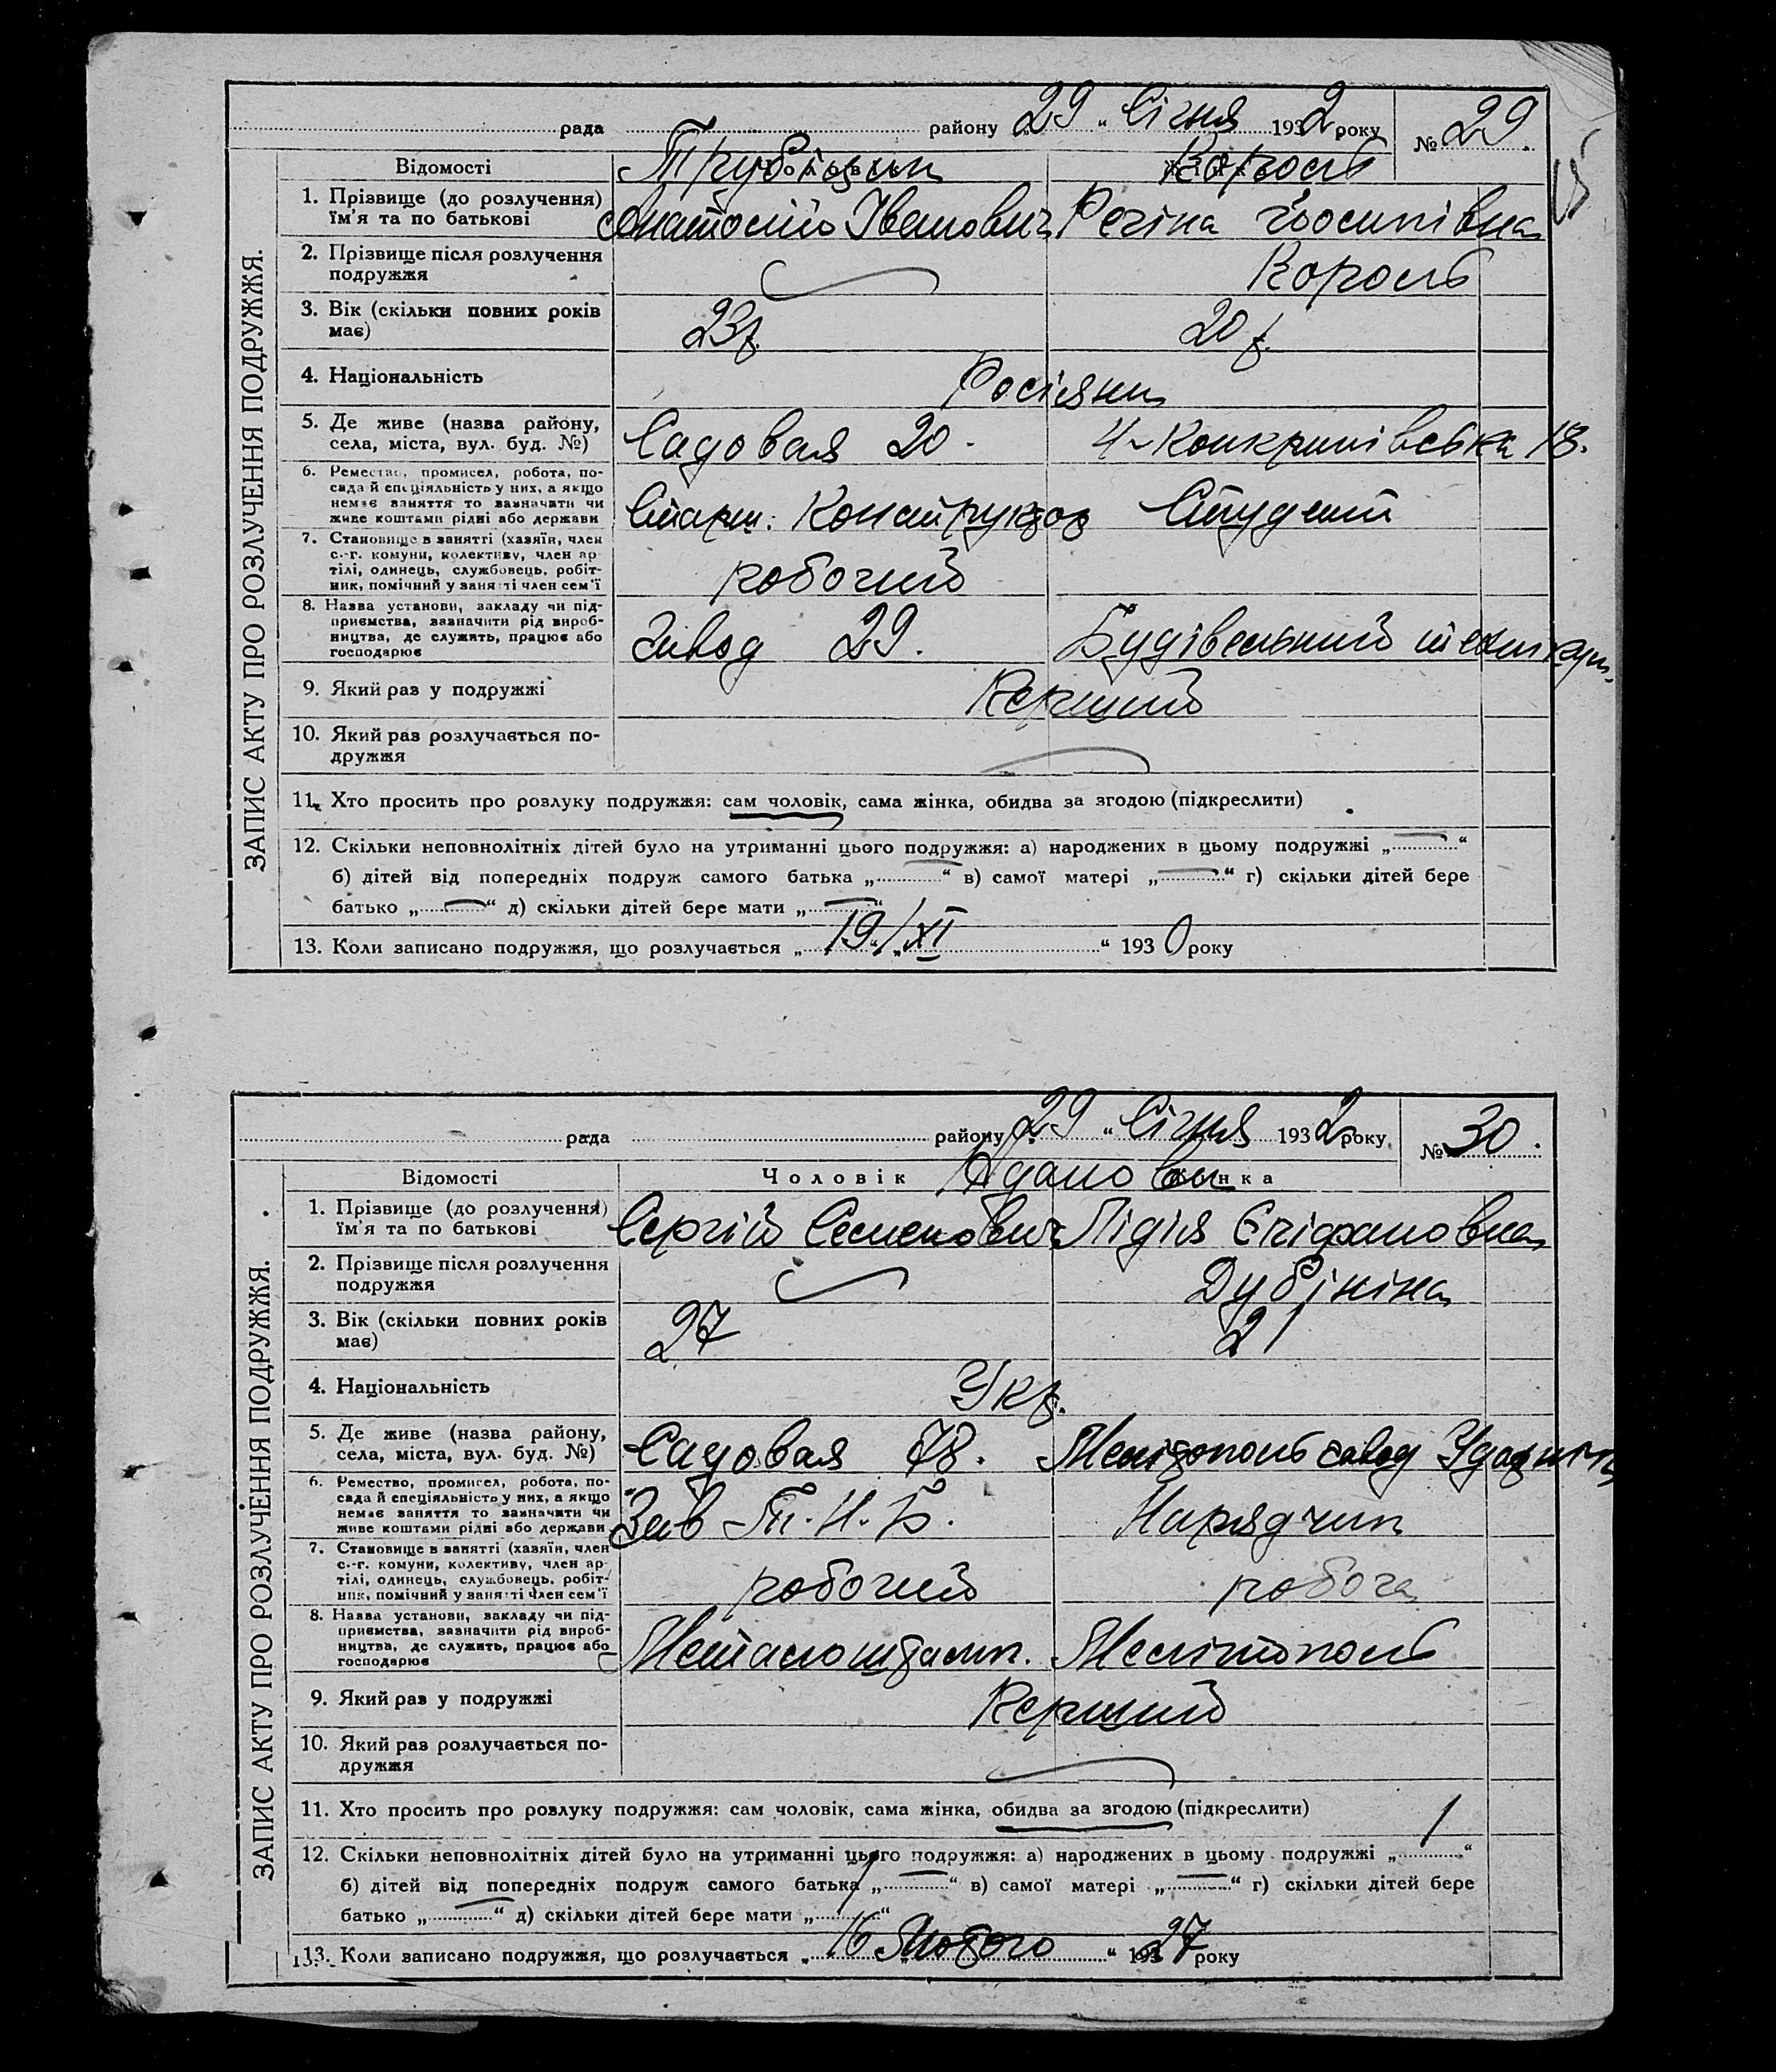 рада района „29“ Січня 1932 року № 29.
ЗАПИС АКТУ ПРО РОЗЛУЧЕННЯ ПОДРУЖЖЯ.
Відомості Король
1. Прізвище (до розлучення) ім'я та по батькові Анатолій Іванович Регіна Йосипівна
2. Прізвище після розлучення подружжя Король
3. Вік (скільки повних років має) 23р. 20 р.
4. Національність Росіяни
5. Де живе (назва району, села, міста, вул. буд. №) Садовая 20. 18.
6. Ремество, промисел, робота, посада й спеціяльність у них, а якщо немає заняття то зазначити чи живе коштами рідні або держави Старш. Конструктор Студент
7. Становище в занятті (хазяїн, член с.-г. комуни, колективу, член артілі, одинець, службовець, робітник, помічний у занятті член сем'ї робочий
8. Назва установи, закладу чи підприємства, зазначити рід виробництва, де служить, працює або господарює Завод 29. Будівельний технікум.
9. Який раз у подружжі Перший
10. Який раз розлучається подружжя
11. Хто просить про розлуку подружжя: сам чоловік, сама жінка, обидва за згодою (підкреслити)
12. Скільки неповнолітніх дітей було на утриманні цього подружжя: а) народжених в цьому подружжі „—“
б) дітей від попередніх подруж самого батька „—“ в) самої матері „—“ г) скільки дітей бере
батько „—“ д) скільки дітей бере мати „—“
13. Коли записано подружжя, що розлучається „19“/„XI“ 1930 року
рада району „29“ Січня 1932 року. № 30.
ЗАПИС АКТУ ПРО РОЗЛУЧЕННЯ ПОДРУЖЖЯ.
Відомості Чоловік Адамовы Жінка
1. Прізвище (до розлучення) ім'я та по батькові Сергій Семенович Лідія Єпіфановна
2. Прізвище після розлучення подружжя Дубініна
3. Вік (скільки повних років має) 27 21
4. Національність Укр.
5. Де живе (назва району, села, міста, вул. буд. №) Садовая 78. Мелітополь завод
6. Ремество, промисел, робота, посада й спеціяльність у них, а якщо немає заняття то зазначити чи живе коштами рідні або держави Зав Т.Н.Б. Нарядчик
7. Становище в занятті (хазяїн, член с.-г. комуни, колективу, член артілі, одинець, службовець, робітник, помічний у занятті член сем'ї робочий робоча
8. Назва установи, закладу чи підприємства, зазначити рід виробництва, де служить, працює або господарює Металоштамп. Мелітополь
9. Який раз у подружжі Перший
10. Який раз розлучається подружжя
11. Хто просить про розлуку подружжя: сам чоловік, сама жінка, обидва за згодою (підкреслити)
12. Скільки неповнолітніх дітей було на утриманні цього подружжя: а) народжених в цьому подружжі „1“
б) дітей від попередніх подруж самого батька „—“ в) самої матері „—“ г) скільки дітей бере
батько „—“ д) скільки дітей бере мати „1“
13. Коли записано подружжя, що розлучається „16 Лютого“ 1927 року